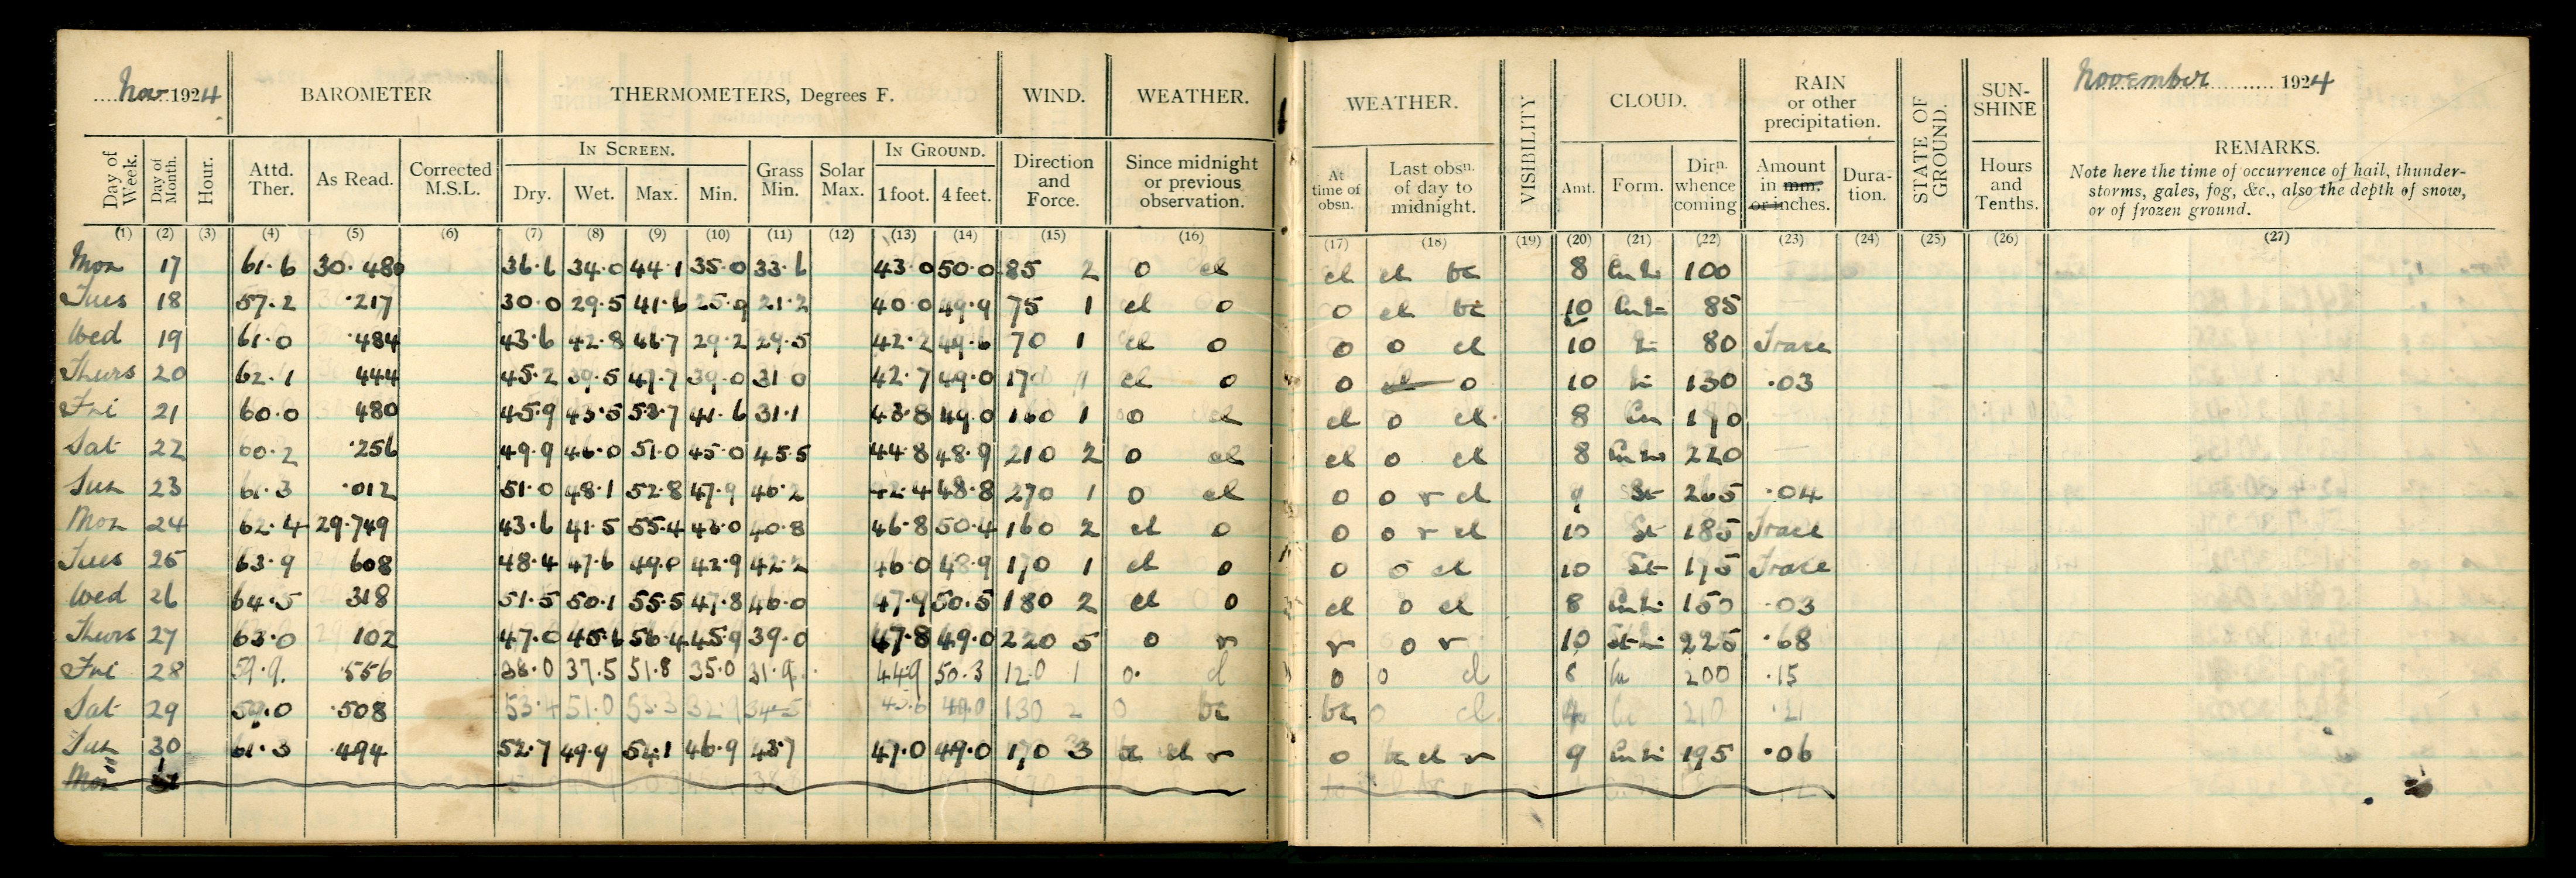 Nov 1924
BAROMETER
THERMOMETERS, Degrees F.
WIND.
WEATHER.
WEATHER.
VISIBILITY
CLOUD.
RAIN or other precipitation.
STATE OF GROUND.
SUN-SHINE
November 1924
Day of Week.
Day of Month.
Hour.
Attd. Ther.
As Read.
Corrected M.S.L.
IN SCREEN.
Dry.
Wet.
Max.
Min.
Grass Min.
Solar Max.
IN GROUND.
1 foot.
4 feet.
Direction and Force.
Since midnight or previous observation.
At time of obsn.
Last obsn. of day to midnight.
Amt.
Form.
Dirn. whence coming
Amount in mm. or inches.
Dura-tion.
Hours and Tenths.
REMARKS.
Note here the time of occurrence of hail, thunder-
storms, gales, fog, &c., also the depth of snow,
or of frozen ground.
(1) (2) (3) (4) (5) (6) (7) (8) (9) (10) (11) (12) (13) (14) (15) (16) (17) (18) (19) (20) (21) (22) (23) (24) (25) (26) (27)
Mon 17 61.6 30.480 36.6 34.0 44.1 35.0 33.6 43.0 50.0 85 2 o cl cl cl bc 8 100
Tues 18 57.2 .217 30.0 29.5 41.6 25.9 21.2 40.0 49.9 75 1 cl o o cl bc 10 85
Wed 19 61.0 .484 43.6 42.8 46.7 29.2 29.5 42.2 49.6 70 1 cl o o o cl 10 80 Trace
Thurs 20 62.1 444 45.2 39.5 47.7 39.0 31.0 42.7 49.0 170 1 cl o o cl o 10 130 .03
Fri 21 60.0 480 45.9 43.5 53.7 41.6 31.1 43.8 49.0 160 1 o cl cl o cl 8 Cu 190
Sat 22 60.2 .256 49.9 46.0 51.0 45.0 45.5 44.8 48.9 210 2 o cl cl o cl 8 220
Sun 23 61.3 .012 51.0 48.1 52.8 47.9 46.2 42.4 48.8 270 1 o cl o o r cl 9 St 265 .04
Mon 24 62.4 29.749 43.6 41.5 55.4 43.0 40.8 46.8 50.4 160 2 cl o o o r cl 10 St 185 Trace
Tues 25 63.9 608 48.4 47.6 49.0 42.9 42.2 46.0 48.9 170 1 cl o o o cl 10 St 175 Trace
Wed 26 64.5 318 51.5 50.1 55.5 47.8 46.0 47.9 50.5 180 2 cl o cl o cl 8 150 .03
Thurs 27 63.0 102 47.0 45.6 56.4 45.9 39.0 47.8 49.0 220 5 o r r o r 10 225 .68
Fri 28 59.9 .556 38.0 37.5 51.8 35.0 31.9 44.9 50.3 120 1 o cl o o cl 8 Cu 200 .15
Sat 29 59.0 .508 53.4 51.0 53.3 32.9 34.5 45.6 49.0 130 2 o bc bc o cl 4 210 .21
Sun 30 61.3 .494 52.7 49.9 54.1 46.9 43.7 47.0 49.0 170 3 bc cl r o bc cl r 9 195 .06
Mon